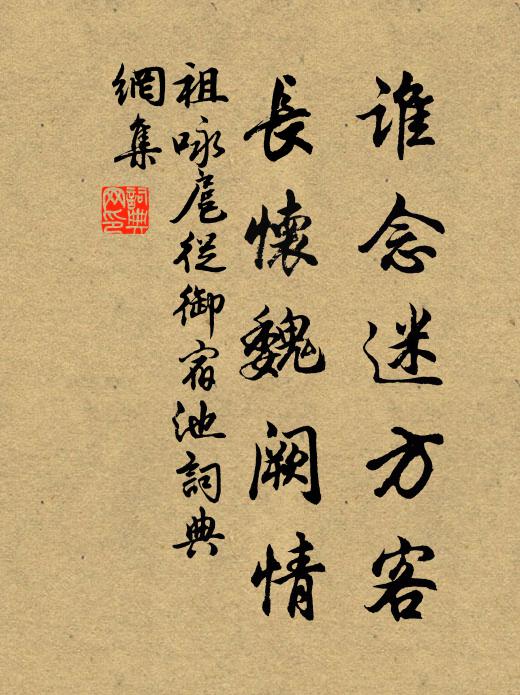 谁念迷方客
長懷魏阙情
祖咏扈從御宿池詞典
網集
詞典
网印